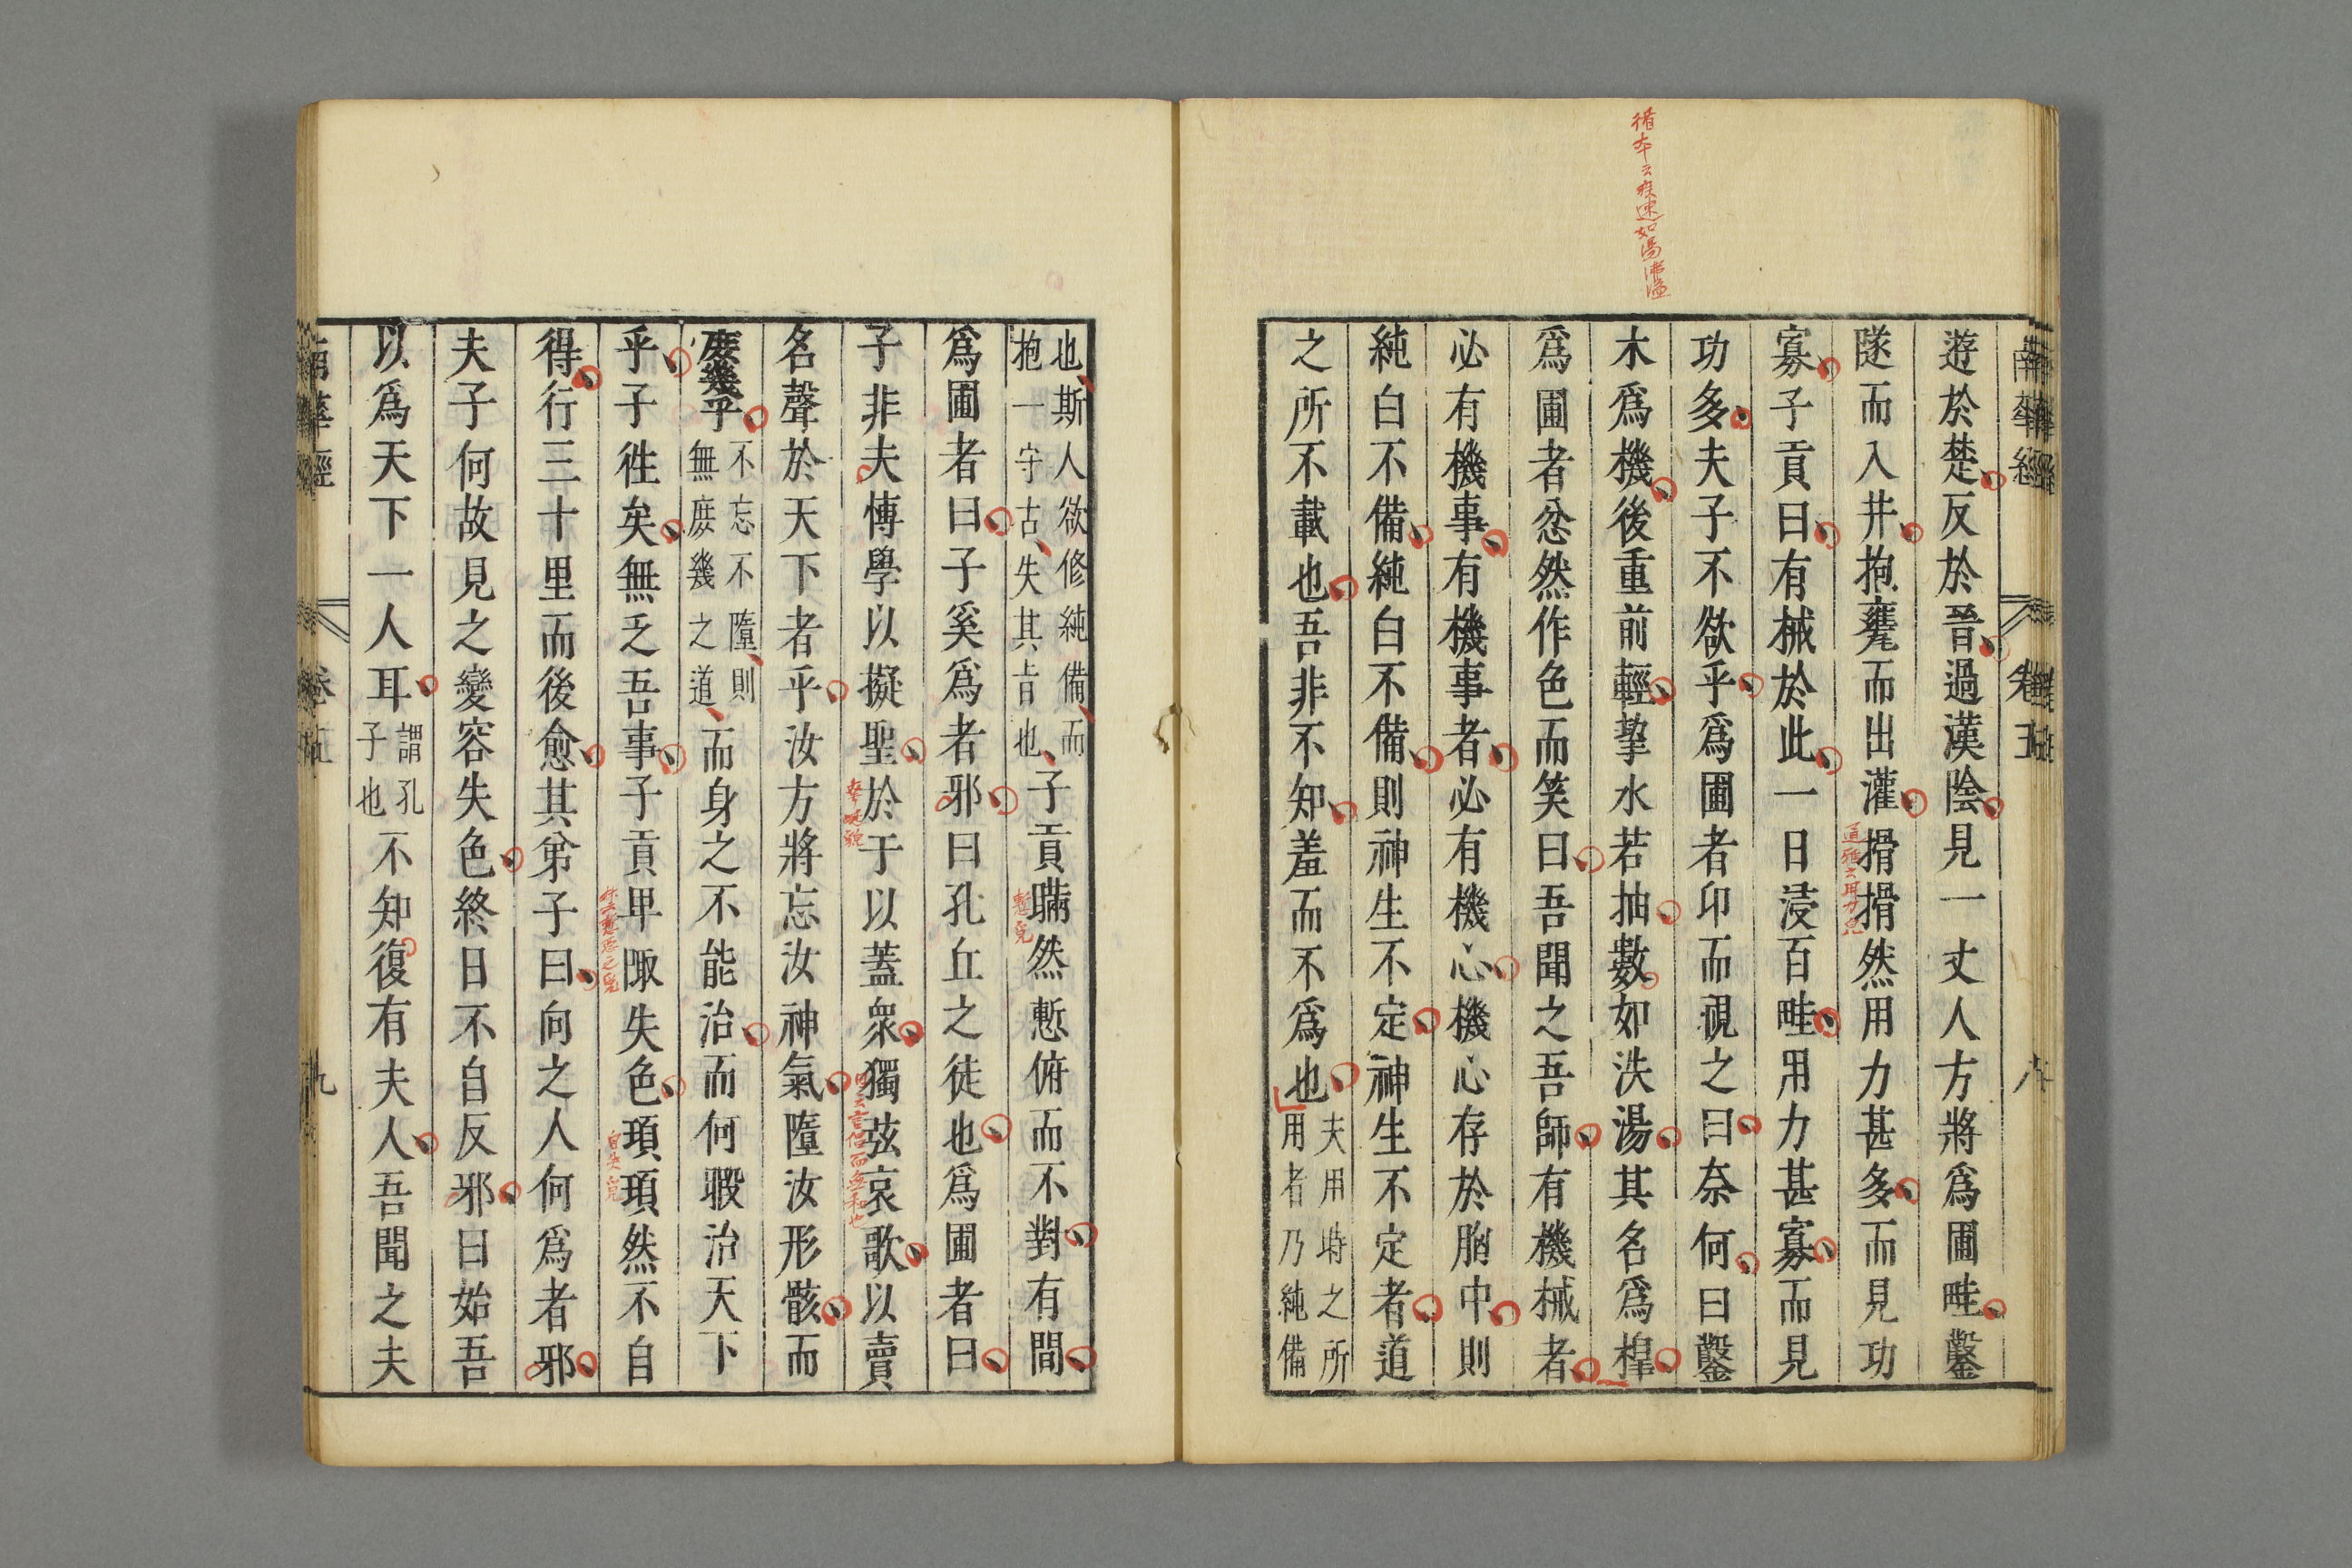 南華經 卷五 八
遊於楚反於晉過漢陰見一丈人方將爲圃畦鑿
隧而入井抱甕而出灌搰搰然用力甚多而見功
寡子貢曰有械於此一日浸百畦用力甚寡而見
功多夫子不欲乎爲圃者卬而視之曰奈何曰鑿
木爲機後重前輕挈水若抽數如泆湯其名爲槹
爲圃者忿然作色而笑曰吾聞之吾師有機械者
必有機事有機事者必有機心機心存於胸中則
純白不備純白不備則神生不定神生不定者道
之所不載也吾非不知羞而不爲也夫用時之所
用者乃純備
循本云疾速如湯沸溢
通雅云用力皃
也斯人欲修純備而
抱一守古失其旨也子貢瞞然慙俯而不對有間
爲圃者曰子奚爲者邪曰孔丘之徒也爲圃者曰
子非夫愽學以擬聖於于以蓋衆獨弦哀歌以賣
名聲於天下者乎汝方將忘汝神氣墮汝形骸而
庶幾乎不忘不墮則
無庶幾之道而身之不能治而何暇治天下
乎子徃矣無乏吾事子貢卑陬失色頊頊然不自
得行三十里而後愈其弟子曰向之人何爲者邪
夫子何故見之變容失色終日不自反邪曰始吾
以爲天下一人耳謂孔
子也不知復有夫人吾聞之夫
慙皃
自失皃
南華經 卷五 九